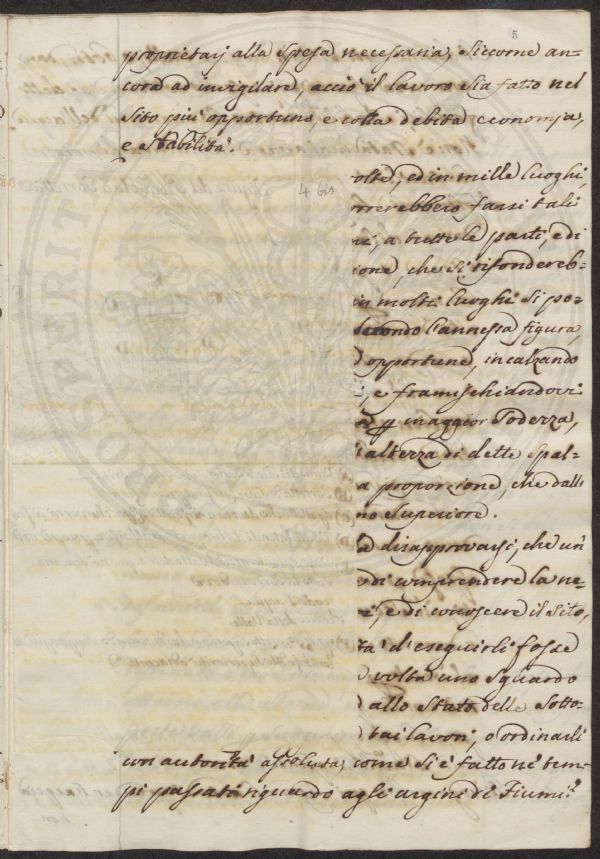 5
proprietarj alla spesa necessaria, siccome an-
cora ad invigilare, acciò il lavoro sia fatto nel
sito più opportuno, e colla debita economia,
e stabilità.
olte, ed in mille luoghi,
4 bis
orrerebbero farsi tali
ni, a tutte le parti, e di
ione, che si rifondereb-
in molti luoghi si po-
secondo l'annessa figura,
opportune, incalzando
, e framischiandovi
maggior sodezza,
altezza di dette spal-
a proporzione, che dalla
no superiore.
disapprovarsi, che un
di comprendere la ne-
i, e di conoscere il sito,
tà d'eseguirli fosse
volta uno sguardo
allo stato delle sotto-
tai lavori, o ordinarli
con autorità assoluta, come si è fatto ne' tem-
pi passati riguardo agli argini di Fiumi.
PROSPERITÀ